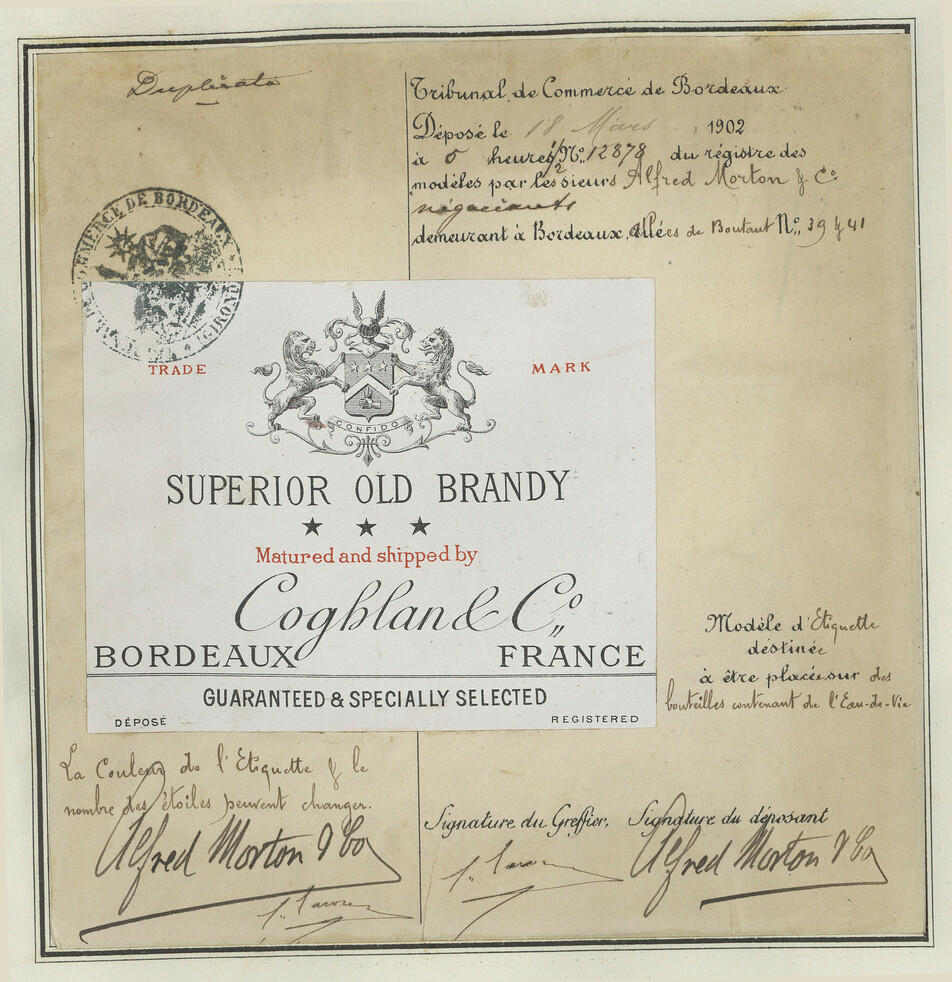 Duplicata
Tribunal de Commerce de Bordeaux
Déposé le 18 Mars 1902
à 5 heures 1/2 No. 12878 du régistre des
modèles par les sieurs Alfred Morton & Co
négociants
demeurant à Bordeaux, allées de Boutaut No. 39 & 41
COMMERCE DE BORDEAUX
(GIRONDE)
TRADE MARK
CONFIDO
SUPERIOR OLD BRANDY
Matured and shipped by
Coghlan & Co.,
BORDEAUX FRANCE
GUARANTEED & SPECIALLY SELECTED
DÉPOSÉ REGISTERED
Modèle d'Etiquette
destinée
à être placée sur des
bouteilles contenant de l'Eau-de-Vie
La Couleur de l'Etiquette & le
nombre des étoiles peuvent changer.
Alfred Morton & Co
Signature du Greffier, Signature du déposant
Alfred Morton & Co